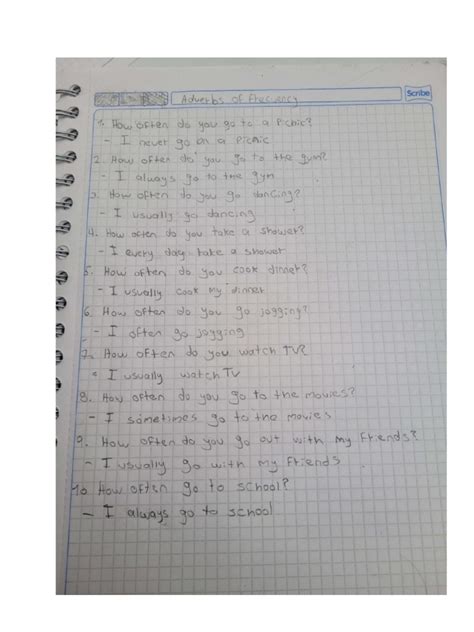 Adverbs of Frecuency
Scribe
1. How often do you go to a Picnic?
- I never go on a Picnic
2. How often do you go to the gym?
- I always go to the gym
3. How often do you go dancing?
- I usually go dancing
4. How often do you take a shower?
- I every day take a shower
5. How often do you cook dinner?
- I usually cook my dinner
6. How often do you go jogging?
- I often go jogging
7. How often do you watch TV?
- I usually watch TV
8. How often do you go to the movies?
- I sometimes go to the movies
9. How often do you go out with my friends?
- I usually go with my friends
10. How often go to school?
- I always go to school